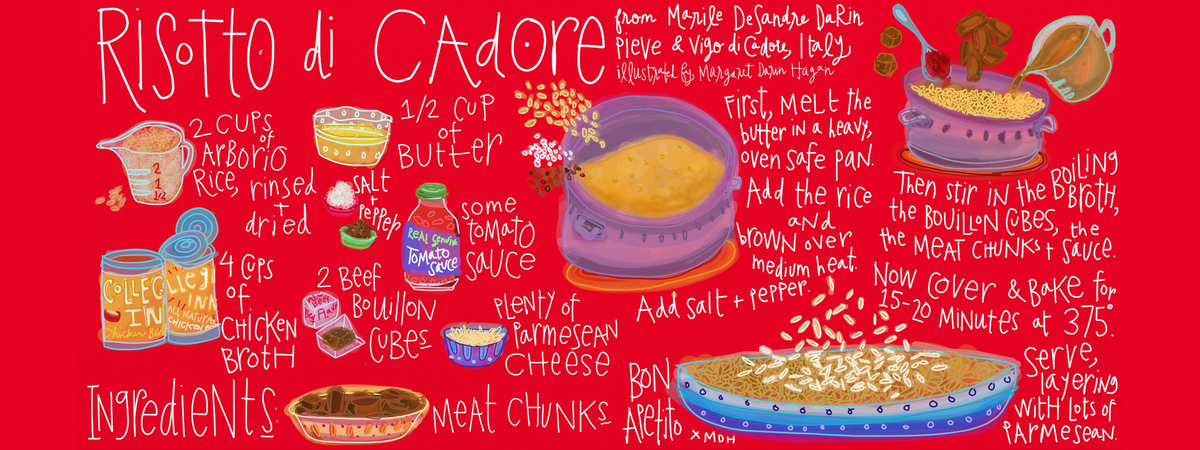 Risotto di Cadore
from Marile DeSandre DaRin
Pieve & Vigo di Cadore, Italy
illustrated by Margaret Darin Hagan
2 cups
of
Arborio
Rice, rinsed
+
dried
1/2 cup
of
Butter
Salt
+
Pepper
Real Genuine
Tomato
Sauce
some
tomato
sauce
College
Inn
Chicken Bro
lleg
Inn
All Natural
Chicken
4 cups
of
Chicken
Broth
2 Beef
Bouillon
Cubes
Beef
Flav
Plenty of
Parmesean
Cheese
Ingredients
Meat Chunks
First, melt the
butter in a heavy,
oven safe pan.
Add the rice
and
brown over
medium heat.
Add salt + pepper.
Then stir in the boiling
broth,
the bouillon cubes, the
the meat chunks + sauce.
Now cover & bake for
15-20 minutes at 375°.
Serve,
layering
with lots of
Parmesean.
Bon
Apetito
XMDH
2
1
1/2